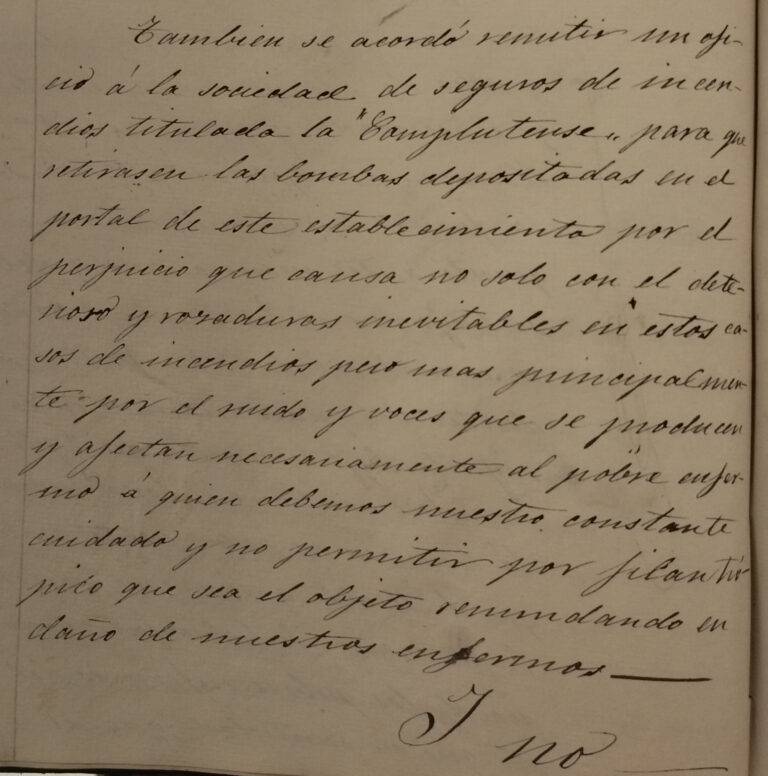 Tambien se acordó remitir un ofi-
cio á la sociedad de seguros de incen-
dios titulada la "Complutense„ para que
retirasen las bombas depositadas en el
portal de este establecimiento por el
perjuicio que causa no solo con el dete-
rioro y rozaduras inevitables en estos ca-
sos de incendios pero mas principalmen-
te por el ruido y voces que se producen
y afectan necesariamente al pobre enfer-
mo á quien debemos nuestro constante
cuidado y no permitir por filantró-
pico que sea el objeto redundando en
daño de nuestros enfermos —
Y no